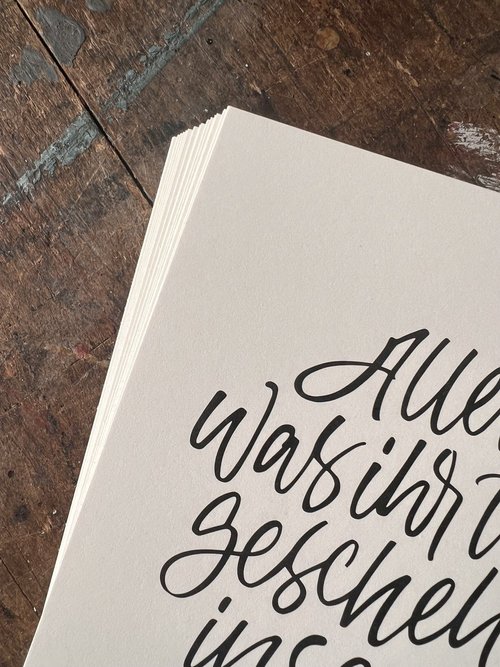 Alle
was ihr t
gescheh
in